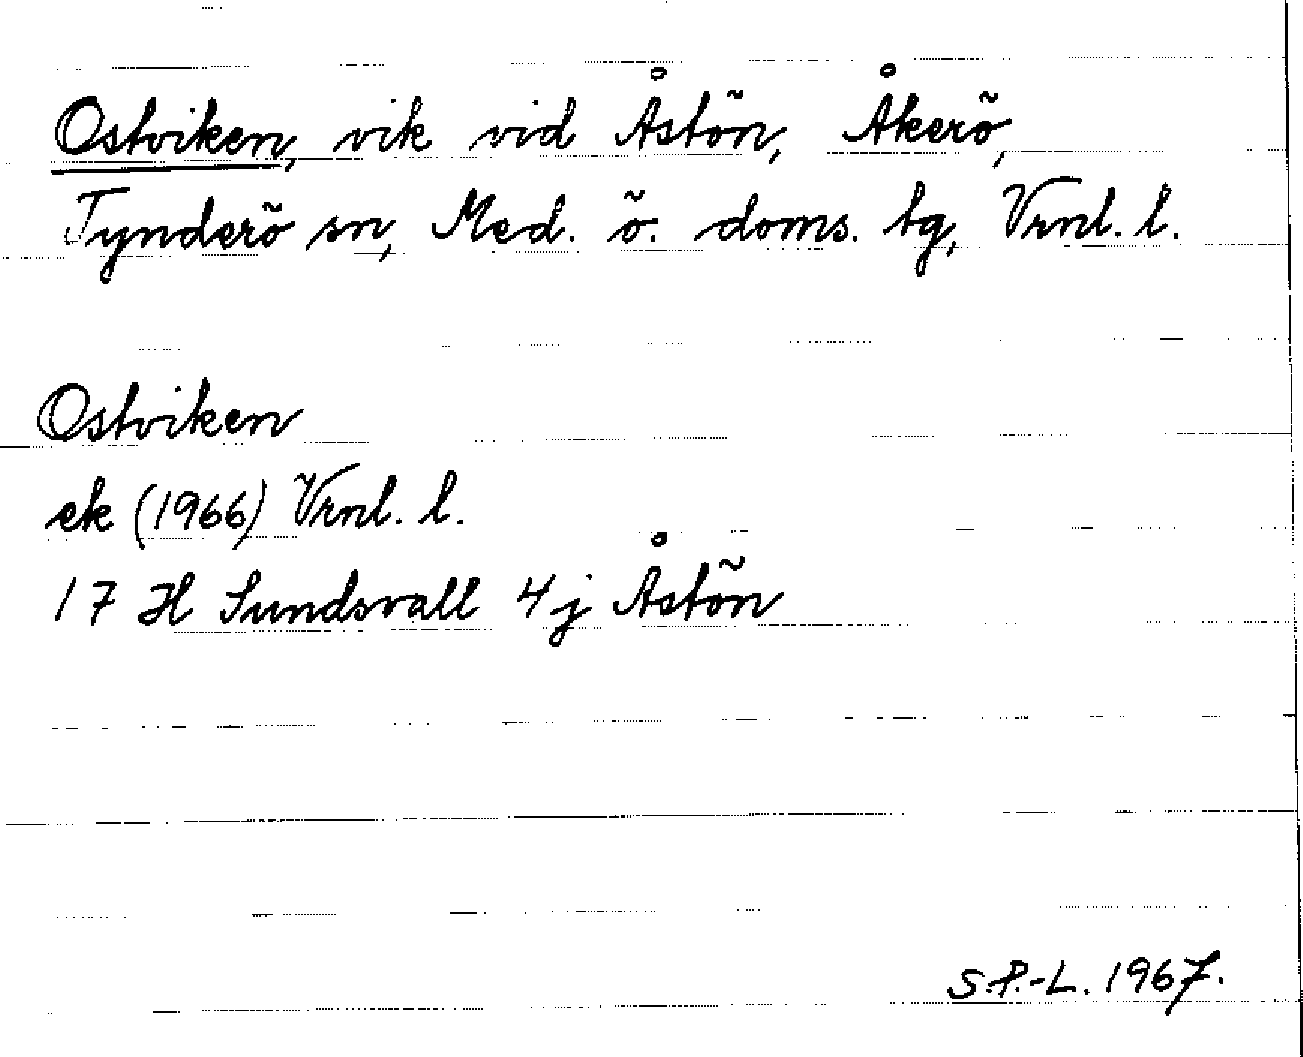 Ostviken, vik vid Åstön, Åkerö,
Tynderö sn, Med. ö. doms. tg, Vrnl. l.
Ostviken
ek (1966) Vrnl. l.
17 H Sundsvall 4j Åstön
S.P.-L. 1967.